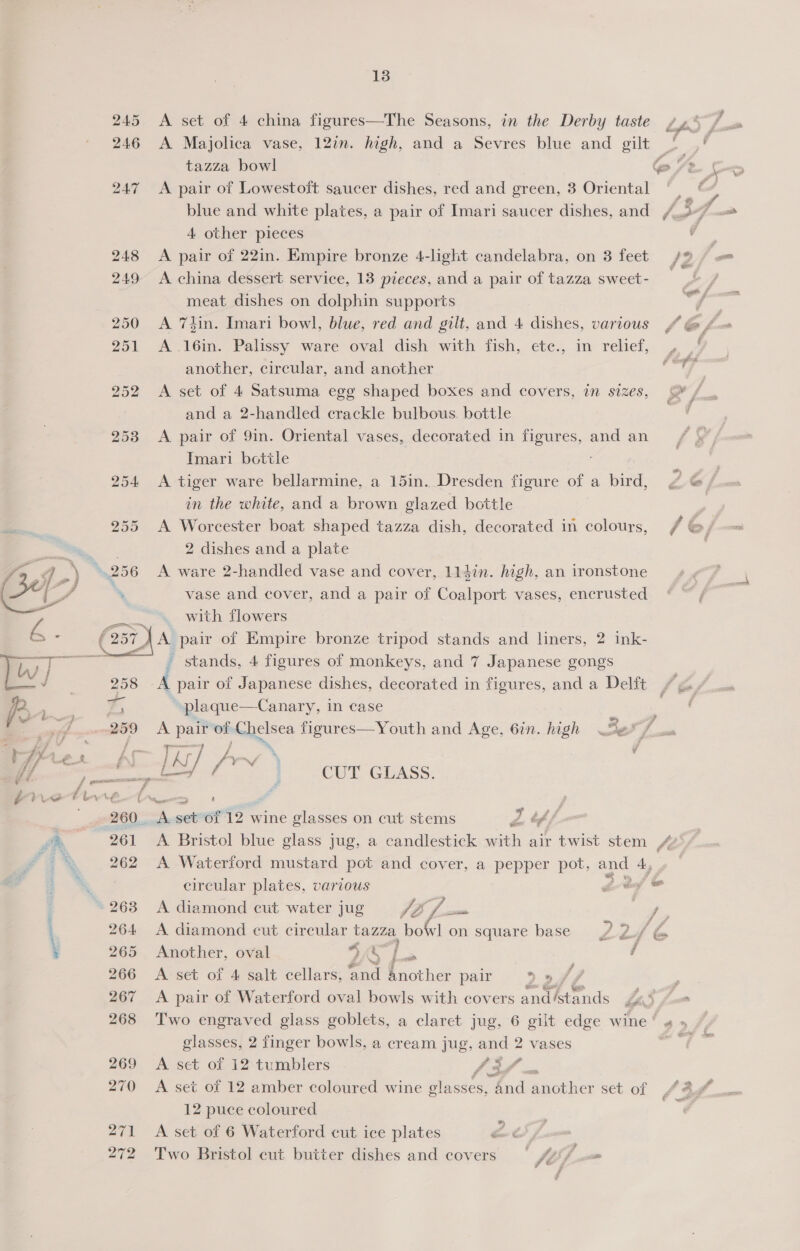 13
245 A set of 4 china figures—The Seasons, in the Derby taste
246 A Majolica vase, 12in. high, and a Sevres blue and gilt
tazza bowl
247 A pair of Lowestoft saucer dishes, red and green, 3 Oriental
blue and white plates, a pair of Imari saucer dishes, and
4 other pieces
248 A pair of 22in. Empire bronze 4-light candelabra, on 3 feet
249 A china dessert service, 13 pieces, and a pair of tazza sweet-
meat dishes on dolphin supports
250 A 7½in. Imari bowl, blue, red and gilt, and 4 dishes, various
251 A 16in. Palissy ware oval dish with fish, etc., in relief,
another, circular, and another
252 A set of 4 Satsuma egg shaped boxes and covers, in sizes,
and a 2-handled crackle bulbous bottle
253 A pair of 9in. Oriental vases, decorated in figures, and an
Imari bottle
254 A tiger ware bellarmine, a 15in. Dresden figure of a bird,
in the white, and a brown glazed bottle
255 A Worcester boat shaped tazza dish, decorated in colours,
2 dishes and a plate
256 A ware 2-handled vase and cover, 11½in. high, an ironstone
vase and cover, and a pair of Coalport vases, encrusted
with flowers
257 A pair of Empire bronze tripod stands and liners, 2 ink-
stands, 4 figures of monkeys, and 7 Japanese gongs
258 A pair of Japanese dishes, decorated in figures, and a Delft
plaque—Canary, in case
259 A pair of Chelsea figures—Youth and Age, 6in. high
CUT GLASS.
260 A set of 12 wine glasses on cut stems
261 A Bristol blue glass jug, a candlestick with air twist stem
262 A Waterford mustard pot and cover, a pepper pot, and 4
circular plates, various
263 A diamond cut water jug
264 A diamond cut circular tazza bowl on square base
265 Another, oval
266 A set of 4 salt cellars, and another pair
267 A pair of Waterford oval bowls with covers and stands
268 Two engraved glass goblets, a claret jug, 6 gilt edge wine
glasses, 2 finger bowls, a cream jug, and 2 vases
269 A set of 12 tumblers
270 A set of 12 amber coloured wine glasses, and another set of
12 puce coloured
271 A set of 6 Waterford cut ice plates
272 Two Bristol cut butter dishes and covers